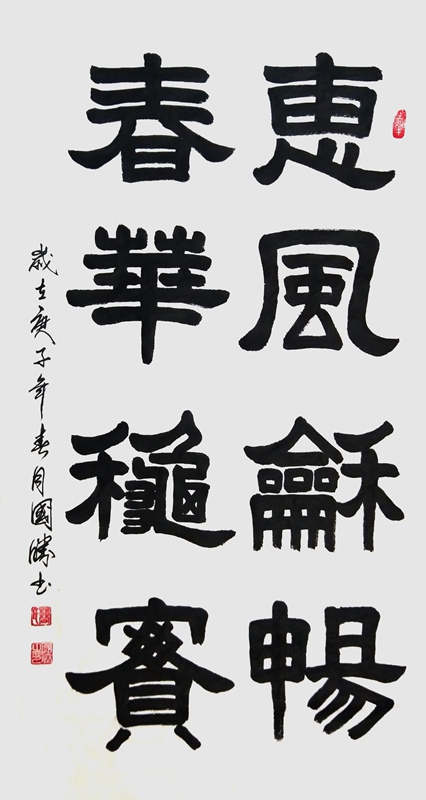 惠風龢暢
春華龝實
歲在庚子年春月國勝書